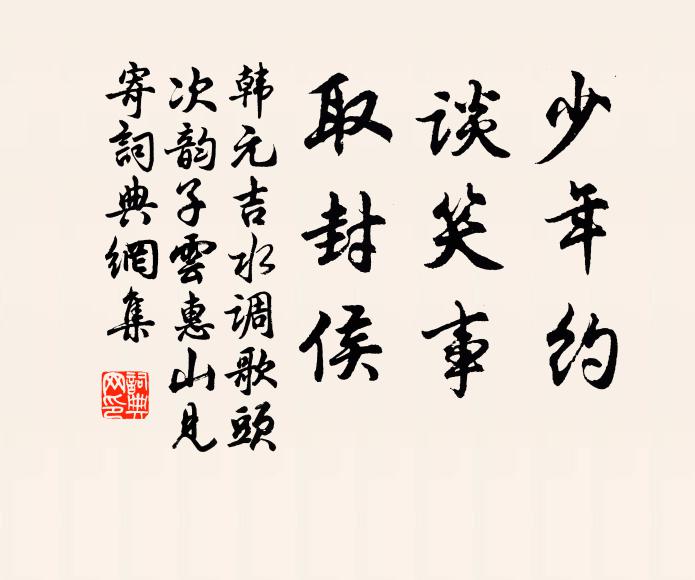 少年约
谈笑事
取封侯
韩元吉水调歌頭
次韵子雲惠山見
寄詞典網集
詞典网印